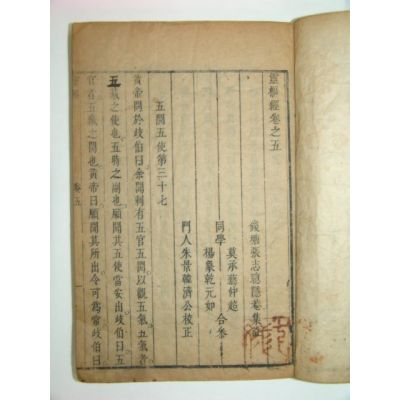 靈樞經卷之五
錢塘張志聰隱菴集註
莫承藝仲超
同學
合參
楊象乾元如
門人朱景韓濟公校正
五閱五使第三十七
黃帝問於歧伯曰余聞刺有五官五閱以觀五氣五氣者
五藏之使也五時之副也願聞其五使當安出歧伯曰五
官者五藏之閱也黃帝曰願聞其所出令可為常歧伯曰
卷五
一